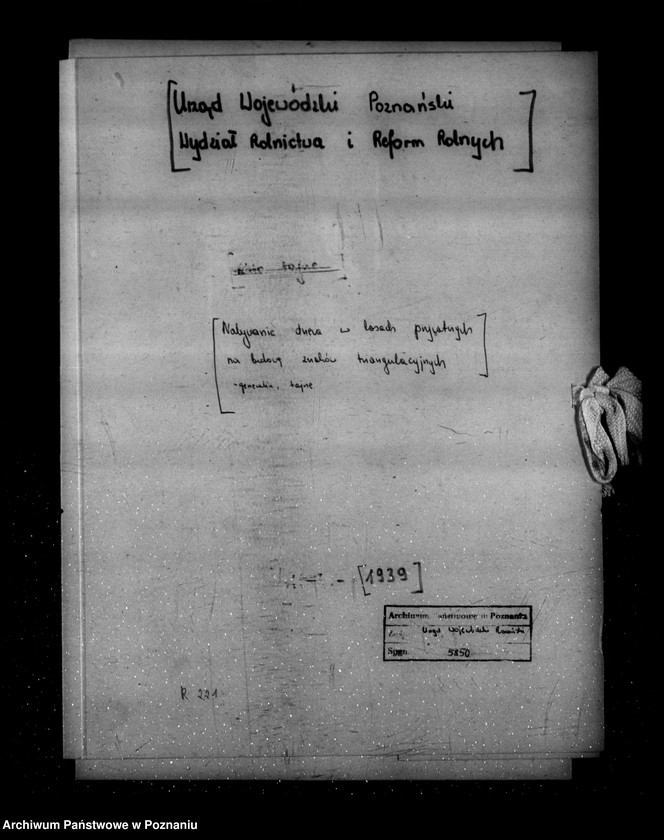 [Urząd Wojewódzki Poznański
Wydział Rolnictwa i Reform Rolnych]
tajne
[Nabywanie drzewa w lasach prywatnych
na budowę znaków triangulacyjnych
- generalia, tajne
- [1939]
Archiwum Państwowe w Poznaniu
Urząd Wojewódzki Poznański
Sygn. 5850
R 221
Archiwum Państwowe w Poznaniu